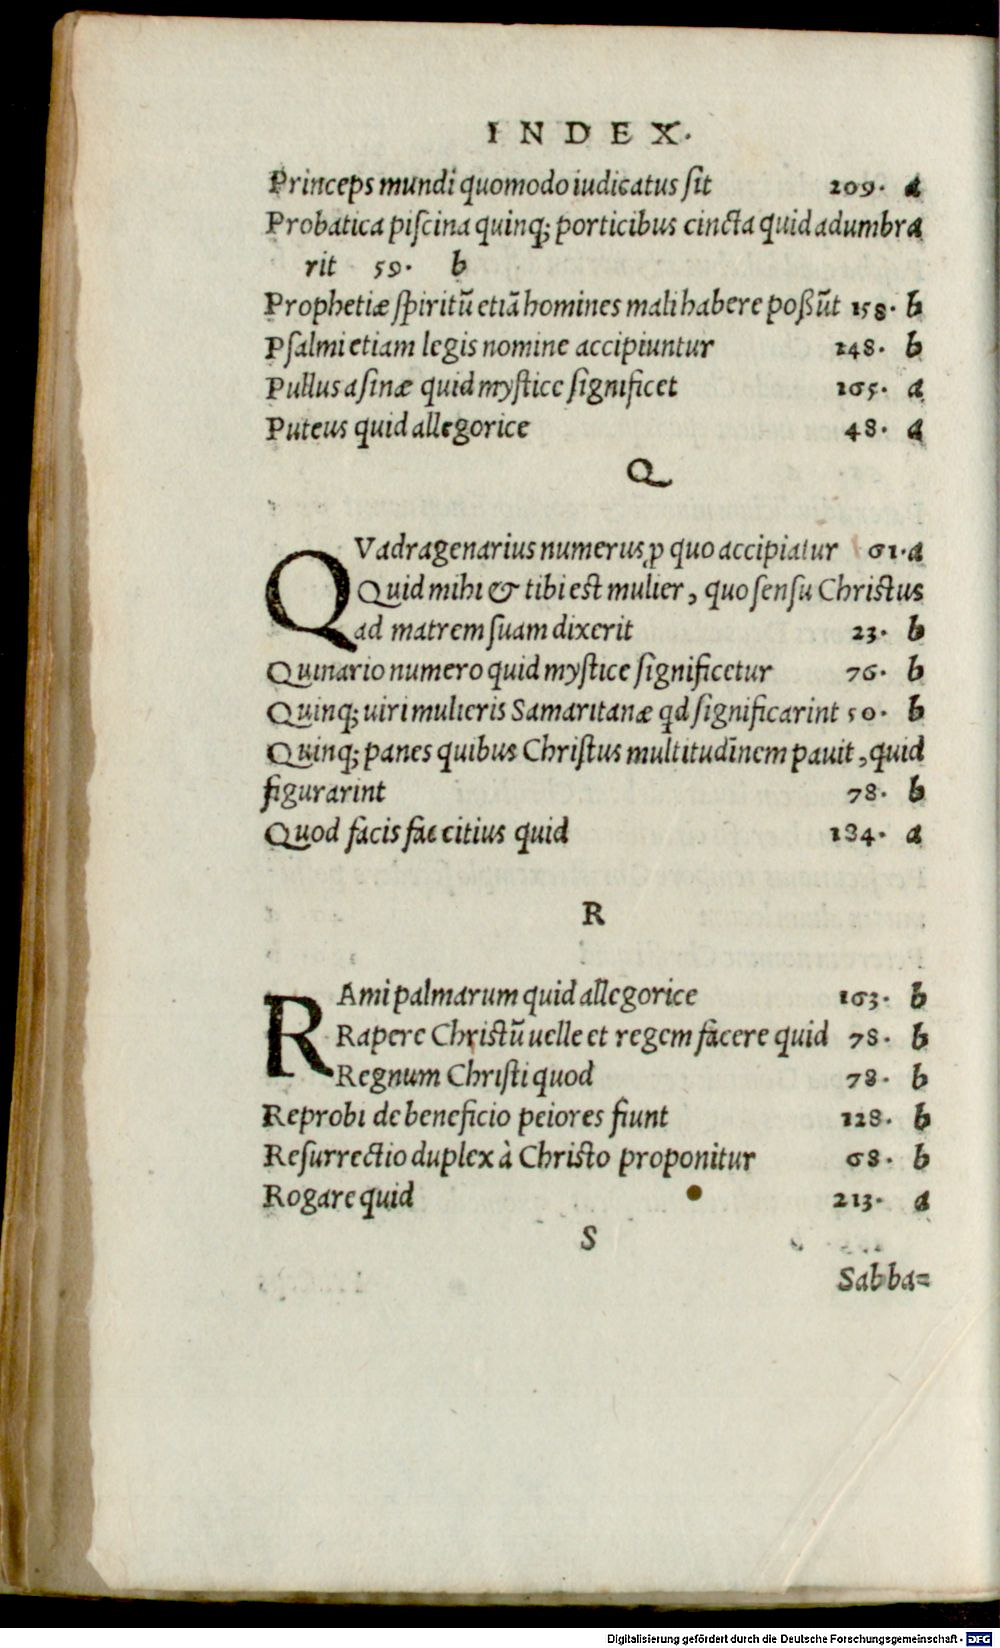 INDEX.
Princeps mundi quomodo iudicatus ſit 209. a
Probatica piſcina quinq; porticibus cincta quid adumbra
rit 59. b
Prophetiæ ſpiritũ etiã homines mali habere poßũt 158. b
Pſalmi etiam legis nomine accipiuntur 148. b
Pullus aſinæ quid myſtice ſignificet 165. a
Puteus quid allegorice 48. a
Q
QVadragenarius numerus ꝓ quo accipiatur 61. a
Quid mihi & tibi est mulier, quo ſenſu Christus
ad matrem ſuam dixerit 23. b
Quinario numero quid myſtice ſignificetur 76. b
Quinq; uiri mulieris Samaritanæ qd ſignificarint 50. b
Quinq; panes quibus Chriſtus multitudinem pauit, quid
figurarint 78. b
Quod facis fac citius quid 184. a
R
RAmi palmarum quid allegorice 163. b
Rapere Christũ uelle et regem facere quid 78. b
Regnum Chriſti quod 78. b
Reprobi de beneficio peiores fiunt 128. b
Reſurrectio duplex à Christo proponitur 68. b
Rogare quid 213. a
S
Sabba=
Digitalisierung gefördert durch die Deutsche Forschungsgemeinschaft - DFG